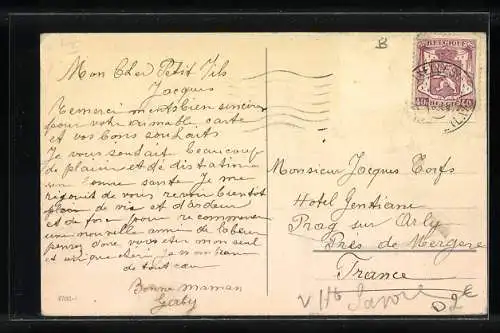 Mon Cher Petit Fils
Jacques
Remerciments bien sincères
pour votre aimable carte
et vos bons souhaits
Je vous souhait beaucoup
de plaisir et de distation
une bonne sante Je me
rejouit de vous revoir bientot
plein de vie et d'ardeur
et de for pour re commencer
une nouvelle année de labeur
pensez donc vous êter mon seul
et unique
de tout cœur
Bonne maman
Gaby
B
BELGIQUE
40 40
BELGIE
Monsieur Jacques Torfs
Hotel Gentiane
Praz sur Arly
Près de Megère
France
Hte Savoie
D 2€